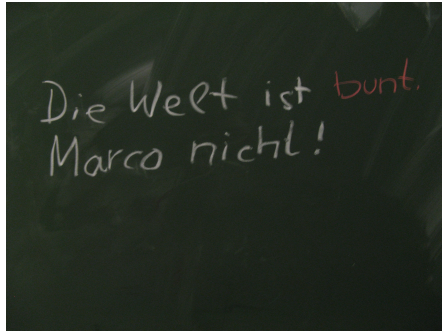 Die Welt ist bunt.
Marco nicht!